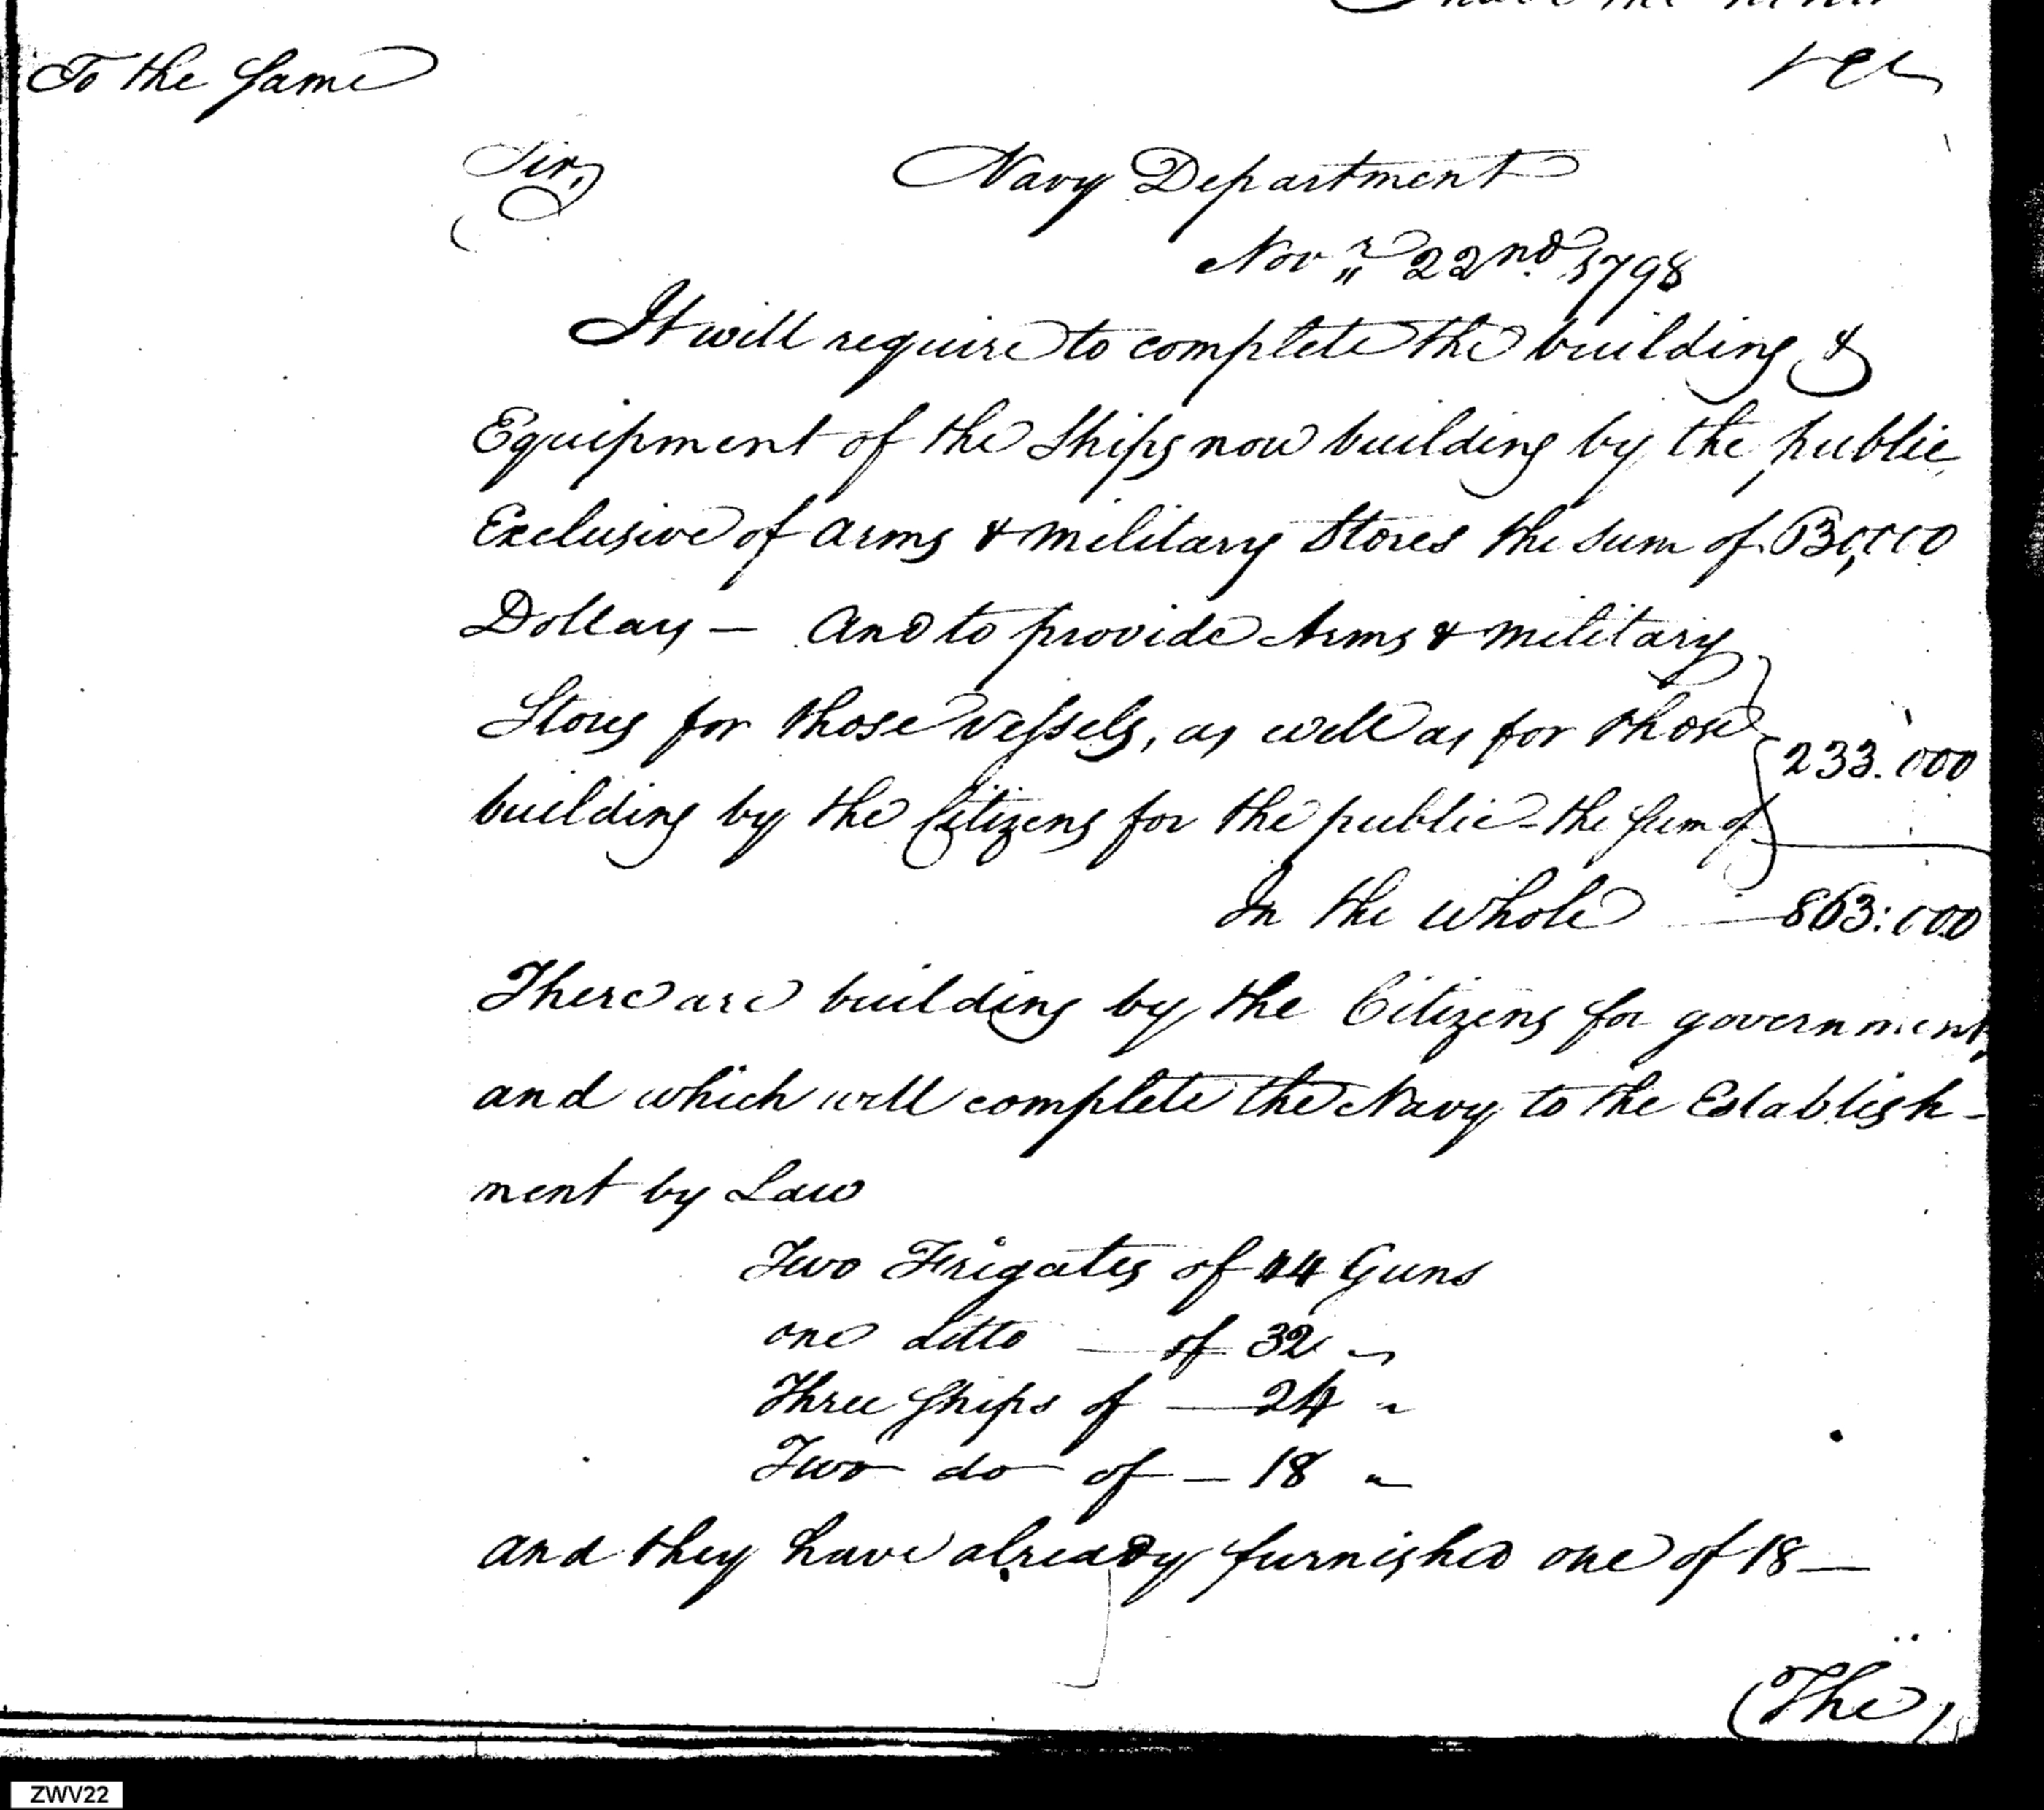 To the same
&c
Sir,
Navy Department
Nov.r 22nd. 1798
It will require to complete the building &
Equipment of the Ships now building by the public,
Exclusive of arms & military Stores the sum of 630,000
Dollars — And to provide Arms & military
Stores for those Vessels, as well as for those
building by the Citizens for the public - the sum of 233.000
In the whole — 863:000
There are building by the Citizens for government,
and which will complete the Navy to the Establish-
ment by Law
Two Frigates of 44 Guns
one ditto — of 32 "
Three Ships of — 24 "
Two do of — 18 "
and they have already furnished one of 18 —
(The)
ZWV22